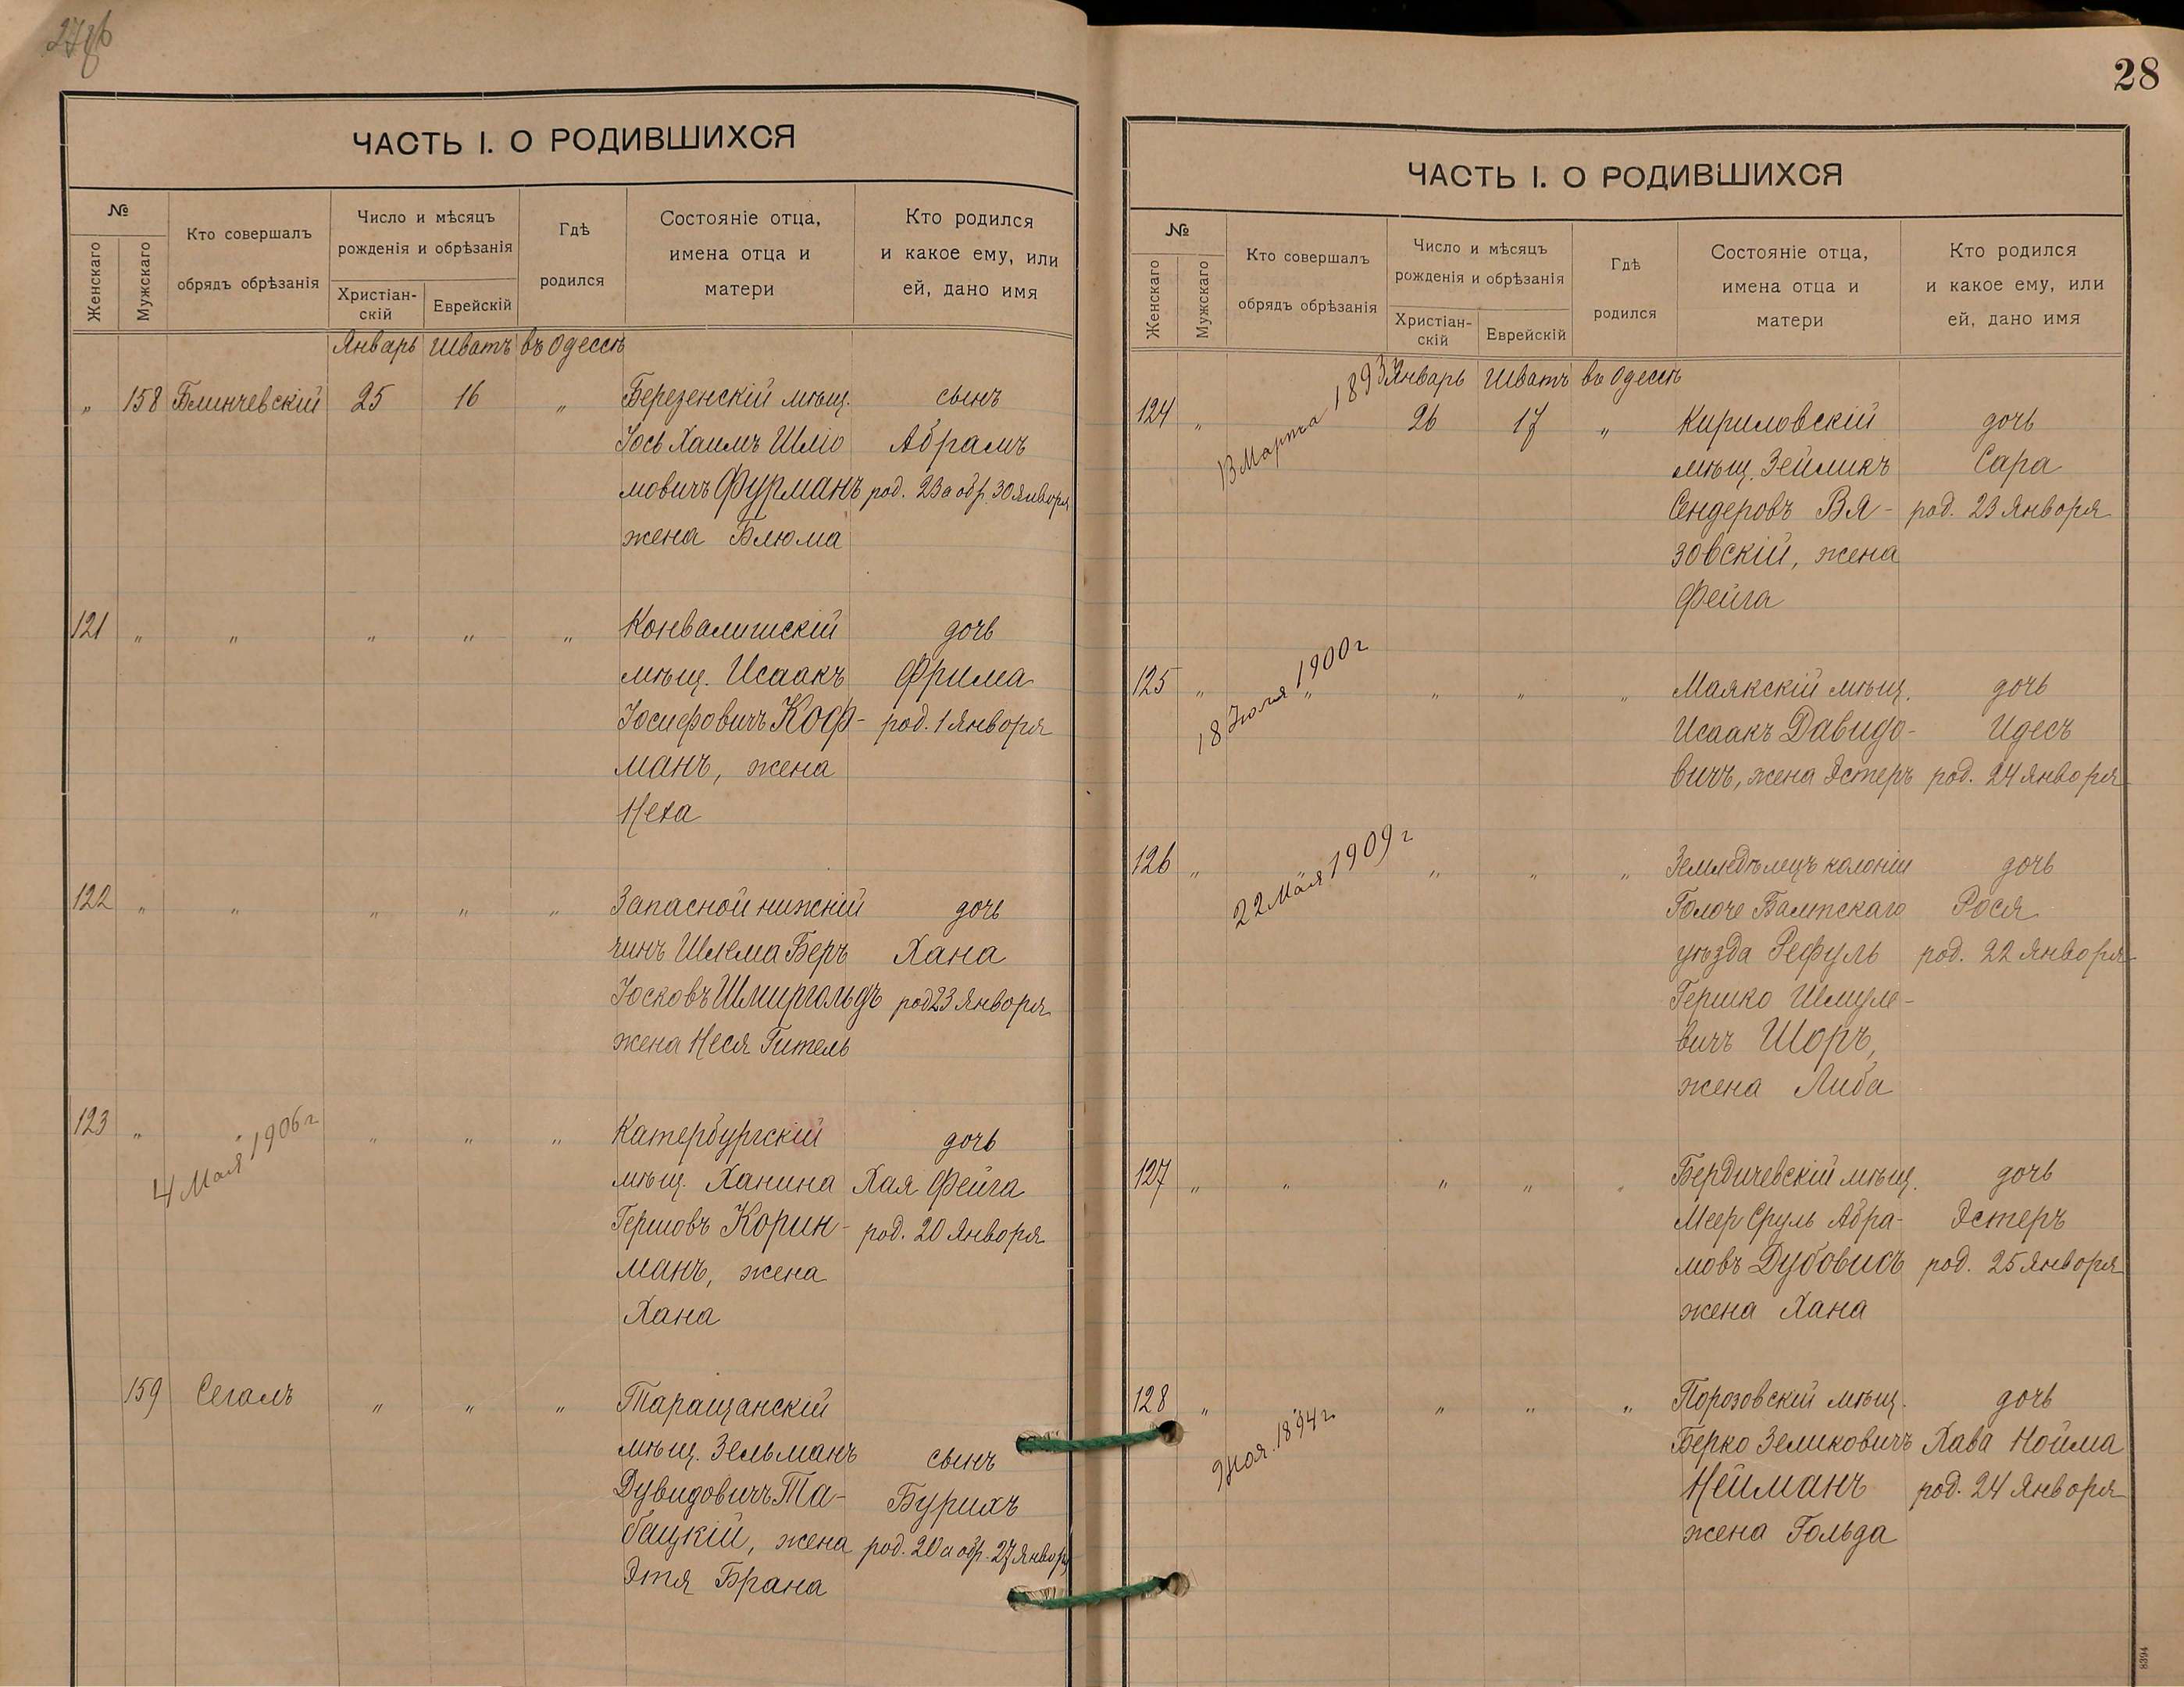 ЧАСТЬ I. О РОДИВШИХСЯ
№
Женскаго
Мужскаго
Кто совершалъ
обрядъ обрѣзанія
Число и мѣсяцъ
рожденія и обрѣзанія
Христіан-
скій
Еврейскій
Гдѣ
родился
Состояніе отца,
имена отца и
матери
Кто родился
и какое ему, или
ей, дано имя
Январь Шватъ въ Одессѣ
„ 158 Блинчевскій 25 16 „ Березенскій мѣщ. сынъ
Іось Хаимъ Шлio Абрамъ
мовичъ Фурманъ род. 23 а обр. 30 Января
жена Блюма
121 „ „ „ „ „ Конвалишскій дочь
мѣщ. Исаакъ Фрима
Іосифовичъ Коф- род. 1 Января
манъ, жена
Неха
122 „ „ „ „ „ Запасной нижній дочь
чинъ Шлема Беръ Хана
Іосковъ Шмиргольдъ род 23 Января
жена Неся Гитель
123 „ „ „ „ „ Катербургскій дочь
4 Мая 1906 г
мѣщ. Ханина Хая Фейга
Гершовъ Корин- род. 20 Января
манъ, жена
Хана
159 Сегалъ „ „ „ Таращанскій
мѣщ. Зельманъ сынъ
Дувидовичъ Та- Бурихъ
бацкій, жена род. 20 а обр. 27 Января
Этя Брана
28
ЧАСТЬ I. О РОДИВШИХСЯ
№
Женскаго
Мужскаго
Кто совершалъ
обрядъ обрѣзанія
Число и мѣсяцъ
рожденія и обрѣзанія
Христіан-
скій
Еврейскій
Гдѣ
родился
Состояніе отца,
имена отца и
матери
Кто родился
и какое ему, или
ей, дано имя
Январь Шватъ въ Одессѣ
124 „ 26 17 „ Кириловскій дочь
13 Марта 1893
мѣщ. Зейликъ Сара
Сендеровъ Вя- род. 23 Января
зовскій, жена
Фейга
125 „ „ „ „ „ Маякскій мѣщ. дочь
18 Іюля 1900 г
Исаакъ Давидо- Идесъ
вичъ, жена Эстеръ род. 24 Января
126 „ „ „ „ „ Земледѣлецъ колоніи дочь
22 Мая 1909 г
Голоче Балтскаго Рося
уѣзда Рефуль род. 22 Января
Гершко Шмуле-
вичъ Шоръ,
жена Либа
127 „ „ „ „ „ Бердичевскій мѣщ. дочь
Меер Сруль Абра- Эстеръ
мовъ Дубовисъ род. 25 Января
жена Хана
128 „ „ „ „ „ Порозовскій мѣщ. дочь
1894 г
Берко Зеликовичъ Хава Нойма
Нейманъ род. 24 Января
жена Гольда
8394